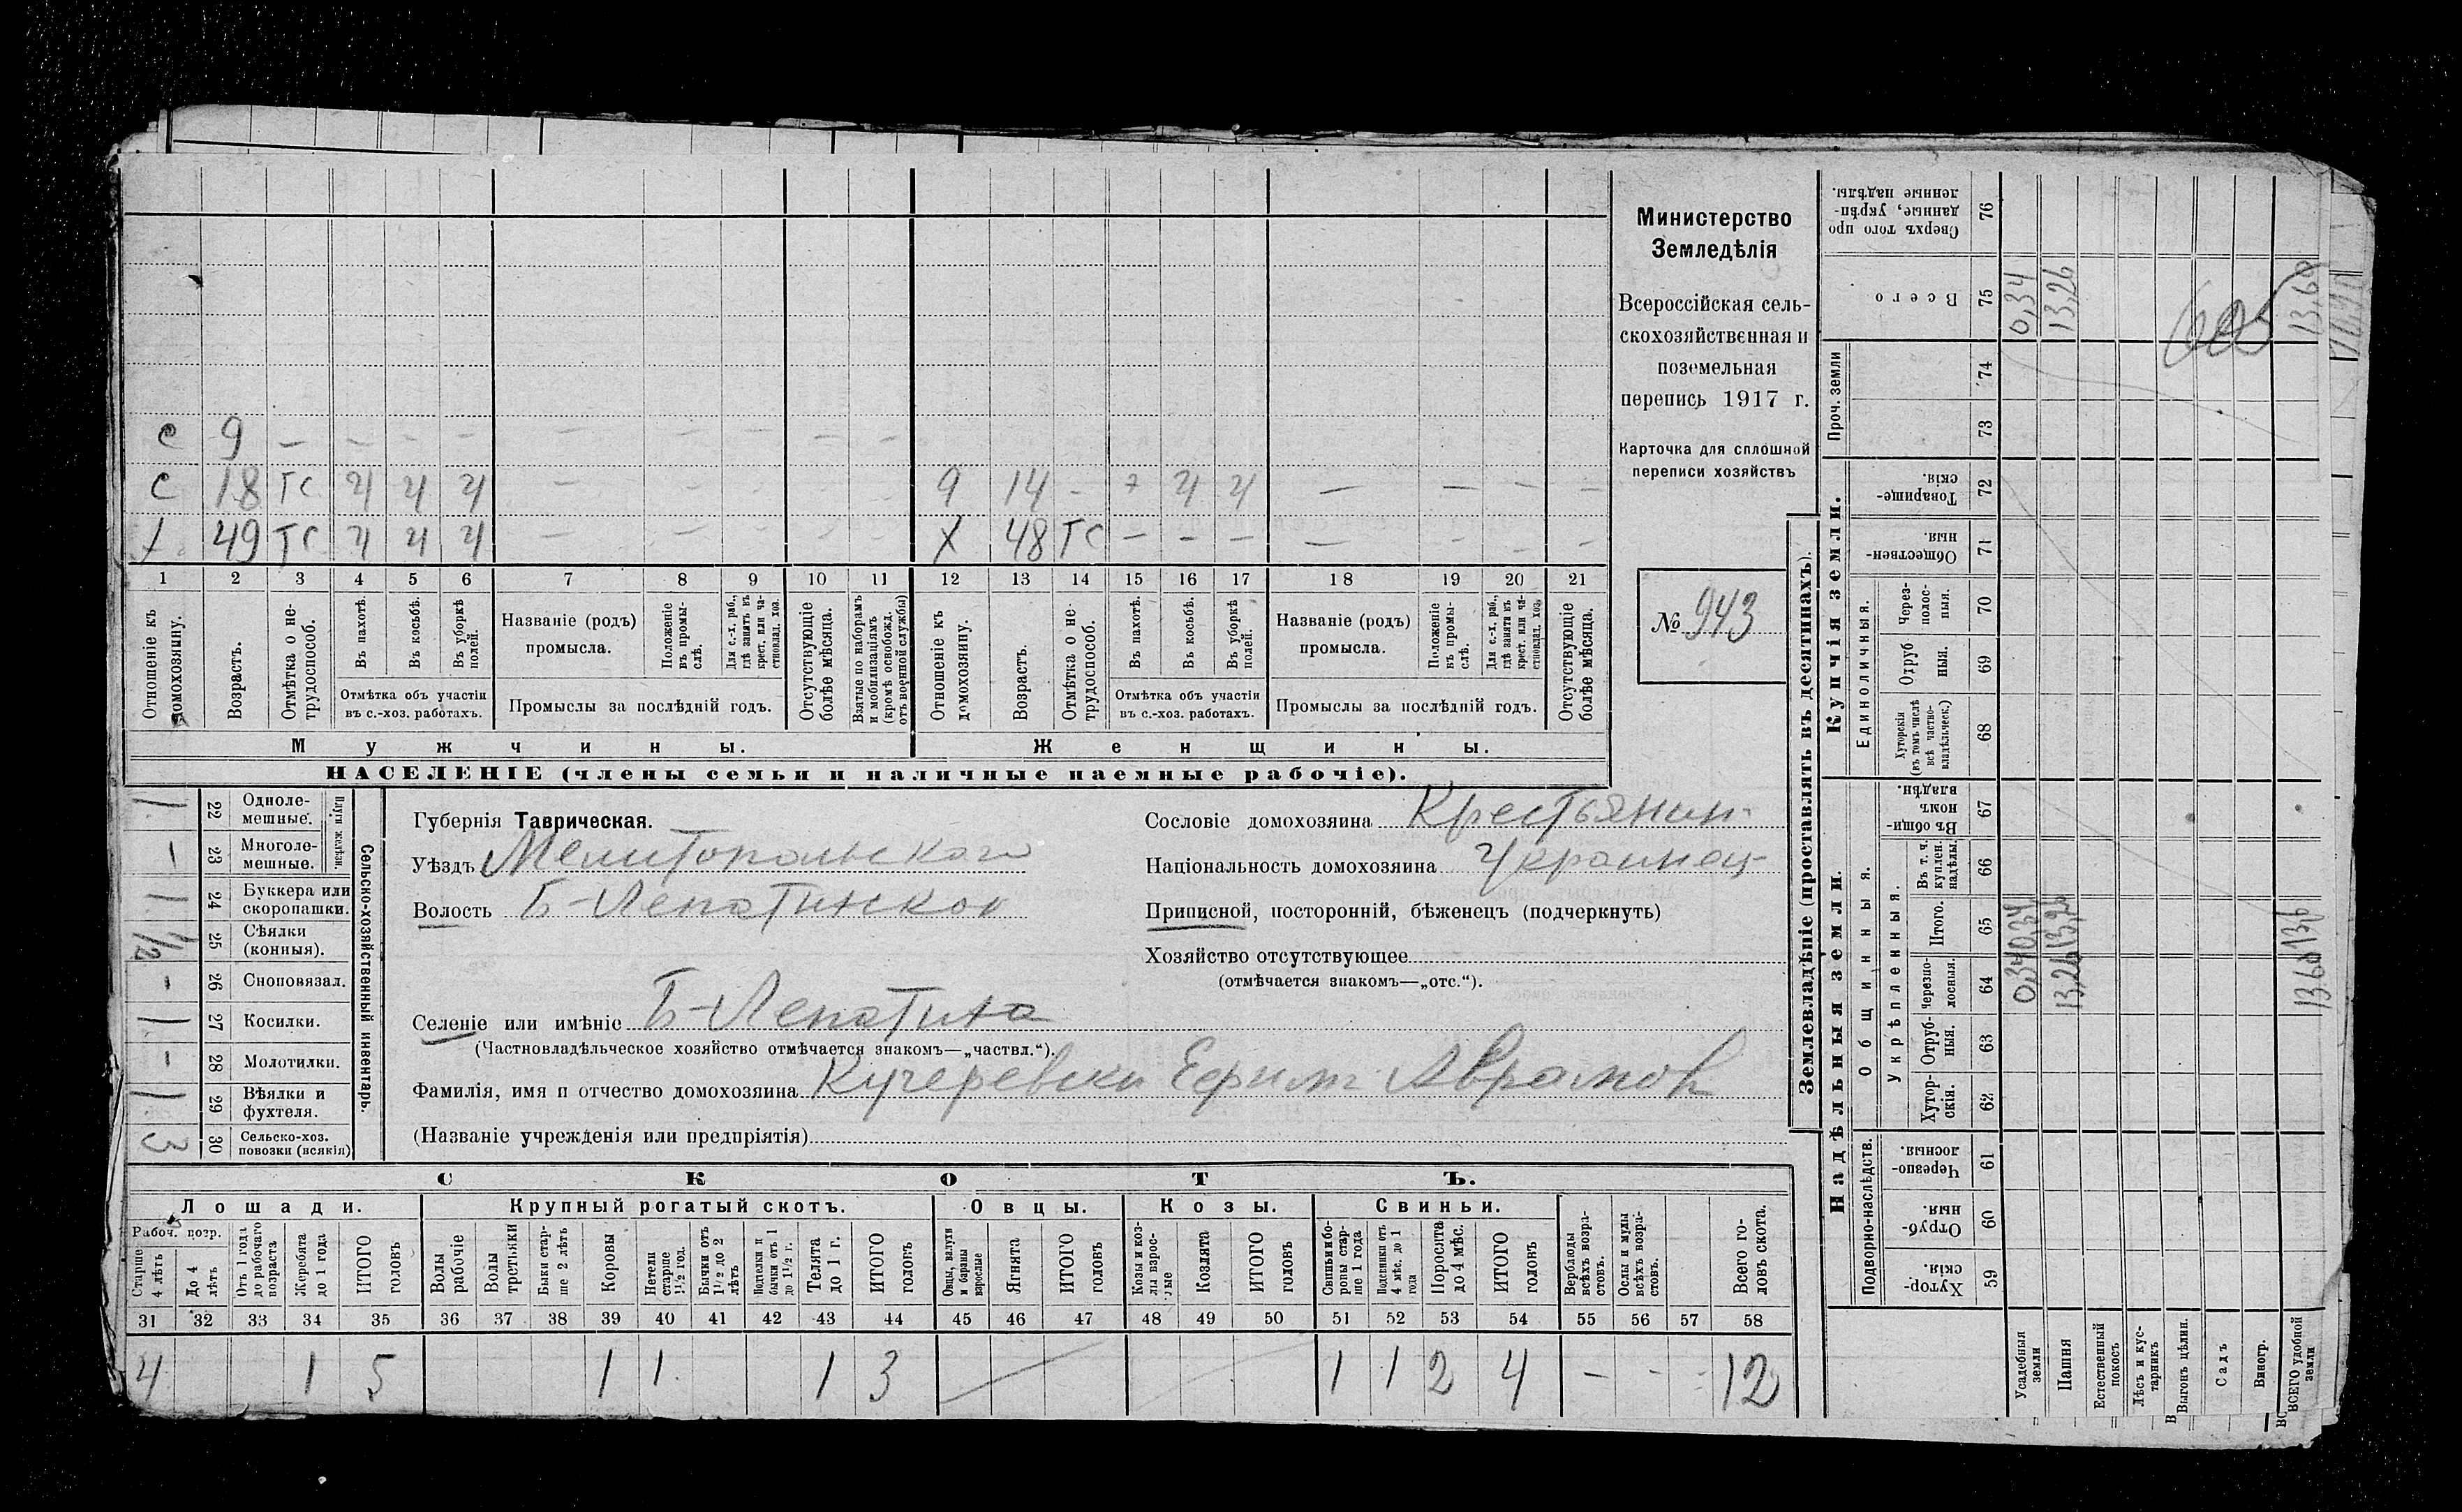 с 9 — — — — — — — — —
с 18 тс ч ч ч — — — — — 9 14 - ч ч — — — —
х 49 тс ч ч ч — — — — — х 48 тс — — — — — — —
1 2 3 4 5 6 7 8 9 10 11 12 13 14 15 16 17 18 19 20 21
Отношеніе къ домохозяину.
Возрастъ.
Отмѣтка о не-
трудоспособ.
Въ пахотѣ.
Въ косьбѣ.
Въ уборкѣ
полей.
Отмѣтка объ участіи
въ с.-хоз. работахъ.
Названіе (родъ)
промысла.
Положеніе
въ промы-
слѣ.
Для с.-х. раб.,
гдѣ занятъ въ
крест. или ча-
стновлад. хоз.
Промыслы за послѣдній годъ.
Отсутствующіе
болѣе мѣсяца.
Взятые по наборамъ
и мобилизаціямъ
(кромѣ освобожд.
отъ военной службы)
Отношеніе къ
домохозяину.
Возрастъ.
Отмѣтка о не-
трудоспособ.
Въ пахотѣ.
Въ косьбѣ.
Въ уборкѣ
полей.
Отмѣтка объ участіи
въ с.-хоз. работахъ.
Названіе (родъ)
промысла.
Положеніе
въ промы-
слѣ.
Для с.-х. раб.,
гдѣ занята въ
крест. или ча-
стновлад. хоз.
Промыслы за послѣдній годъ.
Отсутствующіе
болѣе мѣсяца.
Мужчины. Женщины.
НАСЕЛЕНІЕ (члены семьи и наличные наемные рабочіе).
Министерство
Земледѣлія
Всероссійская сель-
скохозяйственная и
поземельная
перепись 1917 г.
Карточка для сплошной
переписи хозяйствъ
№ 943
Сельско-хозяйственный инвентарь.
Плуги желѣзн.
1 22 Одноле-
мешные.
— 23 Многоле-
мешные.
1 24 Буккера или
скоропашки.
1/2 25 Сѣялки
(конныя).
- 26 Сноповязал.
1 27 Косилки.
- 28 Молотилки.
1 29 Вѣялки и
фухтеля.
3 30 Сельско-хоз.
повозки (всякія)
Губернія Таврическая.
Уѣздъ Мелитопольского
Волость Б-Лепатинской
Селеніе или имѣніе Б-Лепатиха
(Частновладѣльческое хозяйство отмѣчается знакомъ—„частвл.“).
Фамилія, имя и отчество домохозяина Кучеревски Ефим Аврамов
(Названіе учрежденія или предпріятія)
Сословіе домохозяина Крестьянин
Національность домохозяина Украинец
Приписной, посторонній, бѣженецъ (подчеркнуть)
Хозяйство отсутствующее
(отмѣчается знакомъ—„отс.“).
СКОТЪ.
Лошади. Крупный рогатый скотъ. Овцы. Козы. Свиньи.
Рабоч. возр.
Старше
4 лѣтъ
До 4
лѣтъ
Отъ 1 года
до рабочаго
возраста
Жеребята
до 1 года
ИТОГО
головъ
Волы
рабочіе
Волы
третьяки
Быки стар-
ше 2 лѣтъ
Коровы
Нетели
старше
1½ год.
Бычки отъ
1½ до 2
лѣтъ
Подтелки и
бычки отъ 1
до 1½ г.
Телята
до 1 г.
ИТОГО
головъ
Овцы, валухи
и бараны
взрослые
Ягнята
ИТОГО
головъ
Козы и коз-
лы взрос-
лые
Козлята
ИТОГО
головъ
Свиньи и бо-
ровы стар-
ше 1 года
Подсвинки отъ
4 мѣс. до 1
года
Поросята
до 4 мѣс.
ИТОГО
головъ
Верблюды
всѣхъ возра-
стовъ.
Ослы и мулы
всѣхъ возра-
стовъ.
Всего го-
ловъ скота.
31 32 33 34 35 36 37 38 39 40 41 42 43 44 45 46 47 48 49 50 51 52 53 54 55 56 57 58
4 1 5 1 1 1 3 1 1 2 4 - - - 12
Землевладѣніе (проставлять въ десятинахъ).
Надѣльныя земли. Купчія земли.
Подворно-наслѣдств. Общинныя.
Укрѣпленныя.
Единоличныя.
Проч. земли
Хутор-
скія. 59
Отруб-
ныя. 60
Черезпо-
лосныя. 61
Хутор-
скія. 62
Отруб-
ныя. 63
Черезпо-
лосныя. 64
Итого. 65
Въ т. ч.
куплен.
надѣлы. 66
Въ общи-
номъ
владѣн. 67
Хуторскія
(въ томъ числѣ
всѣ частно-
владѣльческ.) 68
Отруб
ныя. 69
Через-
полос-
ныя. 70
Обществен-
ныя. 71
Товарище-
скія. 72
73
74
Всего 75
Сверхъ того про
данные, укрѣп-
ленные надѣлы. 76
Усадебныя
земли 0,34 0,34 0,34
Пашня 13,26 13,26 13,26
Естественный
покосъ
Лѣсъ и кус-
тарникъ
Выгонъ цѣлин.
Садъ
Виногр.
ВСЕГО удобной
земли 13.60 13,6 13,60